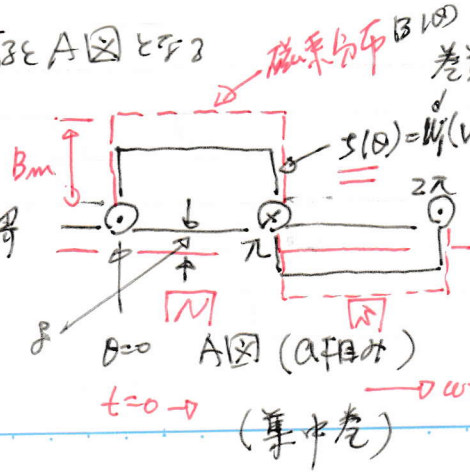 るとA図となる
磁束分布 B(θ)
Bm
g(θ)=
2π
π
N
S
g
θ=0 A図 (a相のみ)
t=0→
→ω
(集中巻)